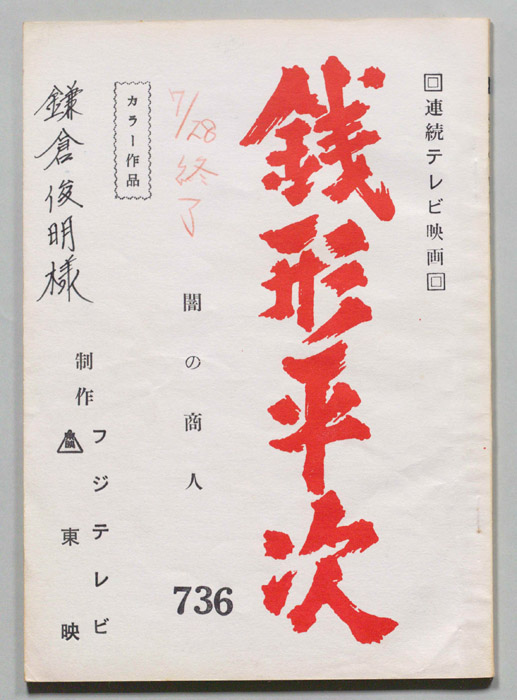 回連続テレビ映画回
銭形平次
7/28終了
闇の商人
736
カラー作品
鎌倉俊明様
制作
フジテレビ
東映